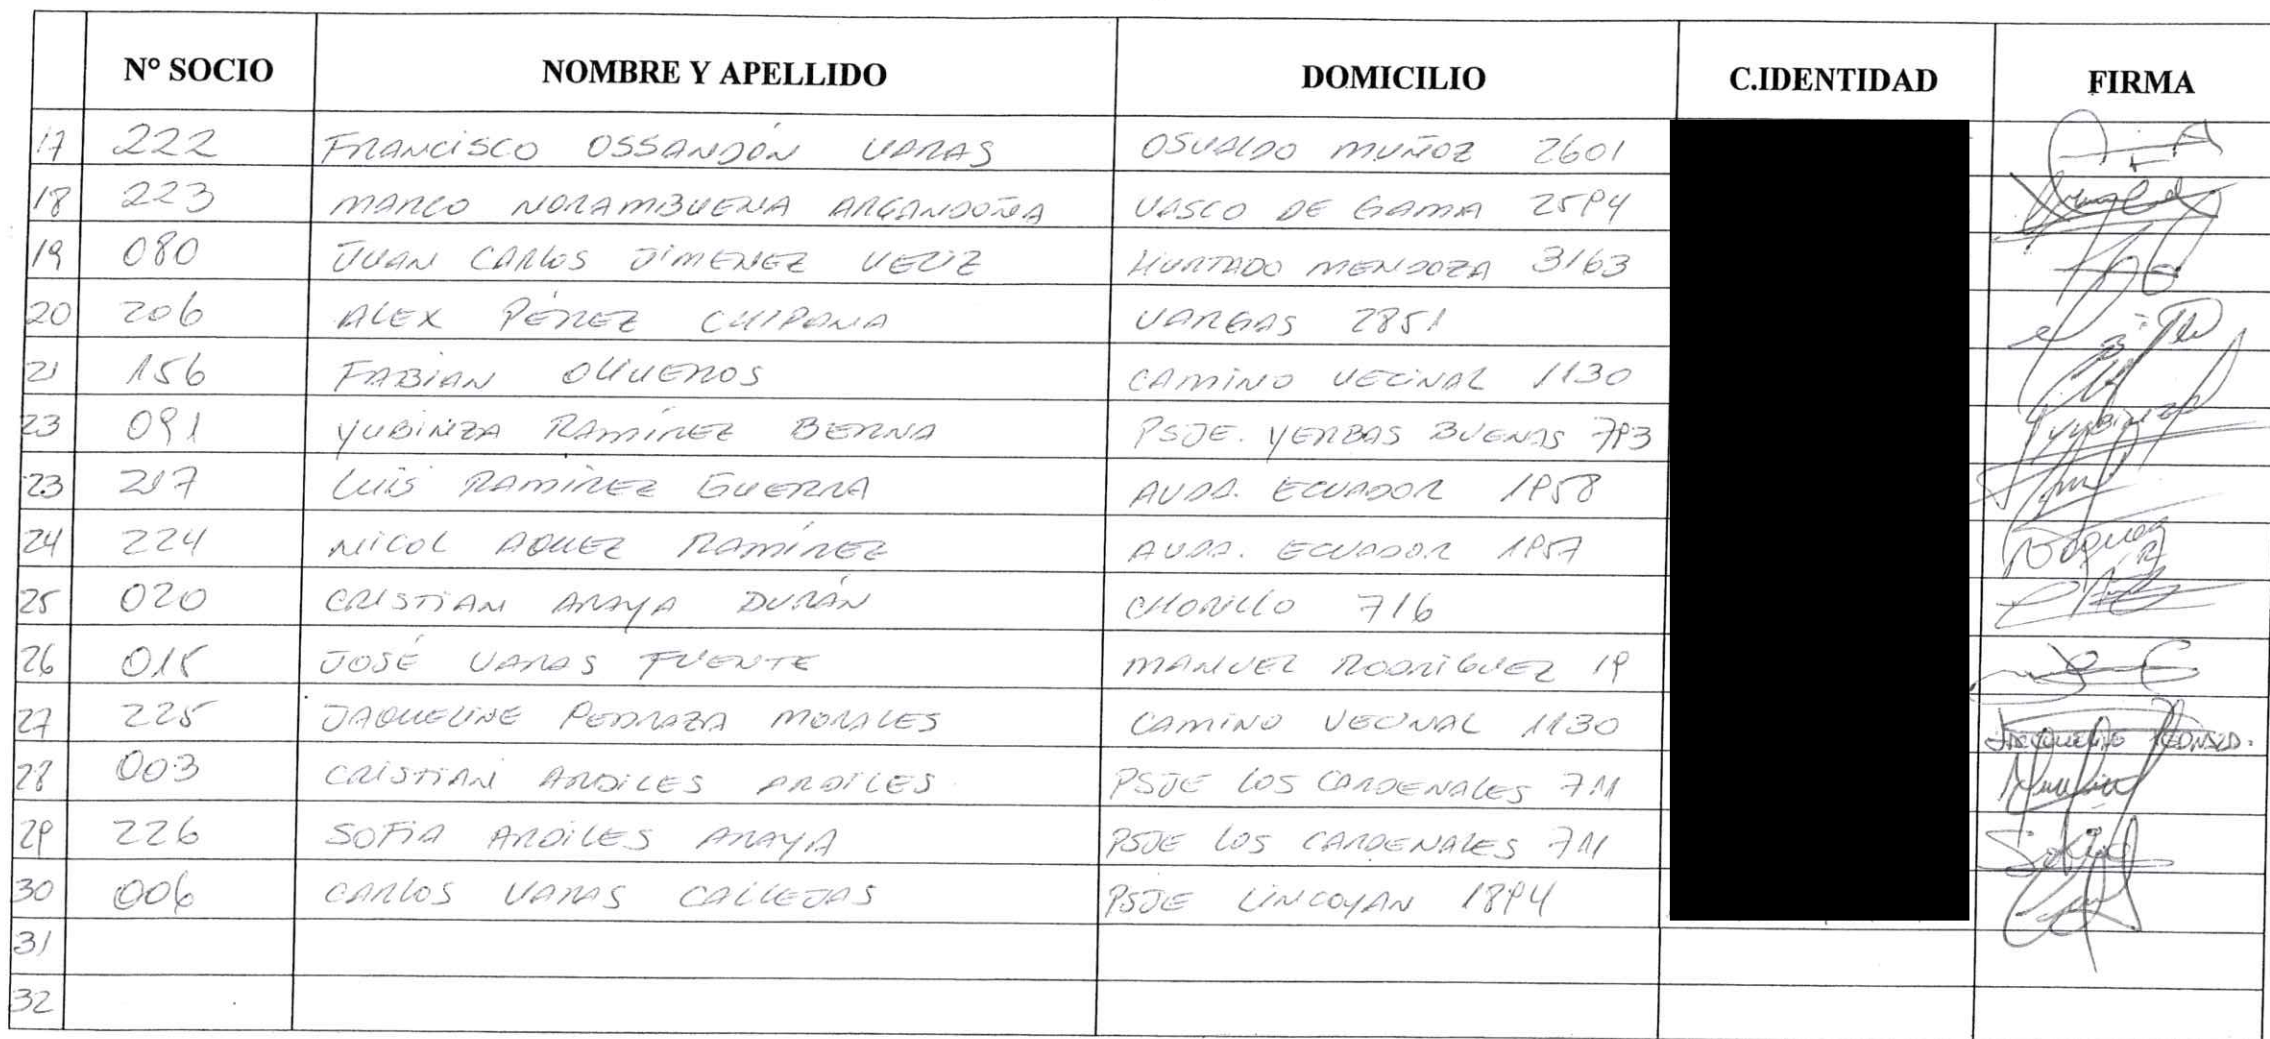 N° SOCIO NOMBRE Y APELLIDO DOMICILIO C.IDENTIDAD FIRMA
17 222 FRANCISCO OSSANDÓN VARAS OSVALDO MUÑOZ 2601
18 223 MARCO NORAMBUENA ARGANDOÑA VASCO DE GAMA 2594
19 080 JUAN CARLOS JIMENEZ VELIZ HURTADO MENDOZA 3163
20 206 ALEX PÉREZ CHIPANA VARGAS 2851
21 156 FABIAN OLIVEROS CAMINO VECINAL 1130
23 091 YUBINZA RAMÍREZ BERNA PSJE. YERBAS BUENAS 793 Yubinza
23 217 LUIS RAMÍREZ GUERRA AVDA. ECUADOR 1958
24 224 NICOL AQUEZ RAMÍREZ AVDA. ECUADOR 1957
25 020 CRISTIAN ARAYA DURÁN CHORILLO 716
26 015 JOSÉ VARAS FUENTE MANUEL RODRÍGUEZ 19
27 225 JAQUELINE PEDRAZA MORALES CAMINO VECINAL 1130
28 003 CRISTIAN ARDILES ARDILES PSJE LOS CARDENALES 711
29 226 SOFIA ARDILES ARAYA PSJE LOS CARDENALES 711
30 006 CARLOS VARAS CALLEJAS PSJE LINCOYAN 1894
31
32